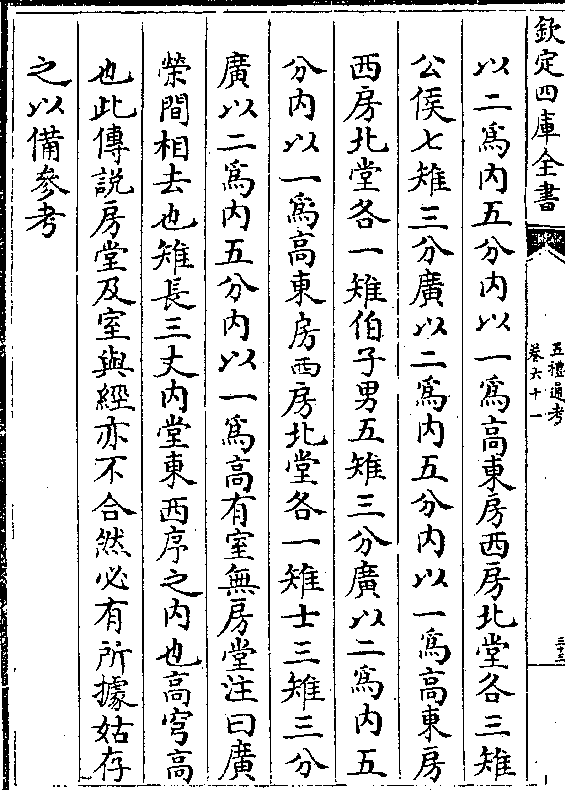 欽定四庫全書
五禮通考
卷六十一
三十三
以二為内五分内以一為髙東房西房北堂各三雉
公侯七雉三分廣以二為内五分内以一為髙東房
西房北堂各一雉伯子男五雉三分廣以二為内五
分内以一為髙東房西房北堂各一雉士三雉三分
廣以二為内五分内以一為髙有室無房堂注曰廣
榮間相去也雉長三丈内堂東西序之内也髙穹髙
也此傳説房堂及室與經亦不合然必有所據姑存
之以備參考